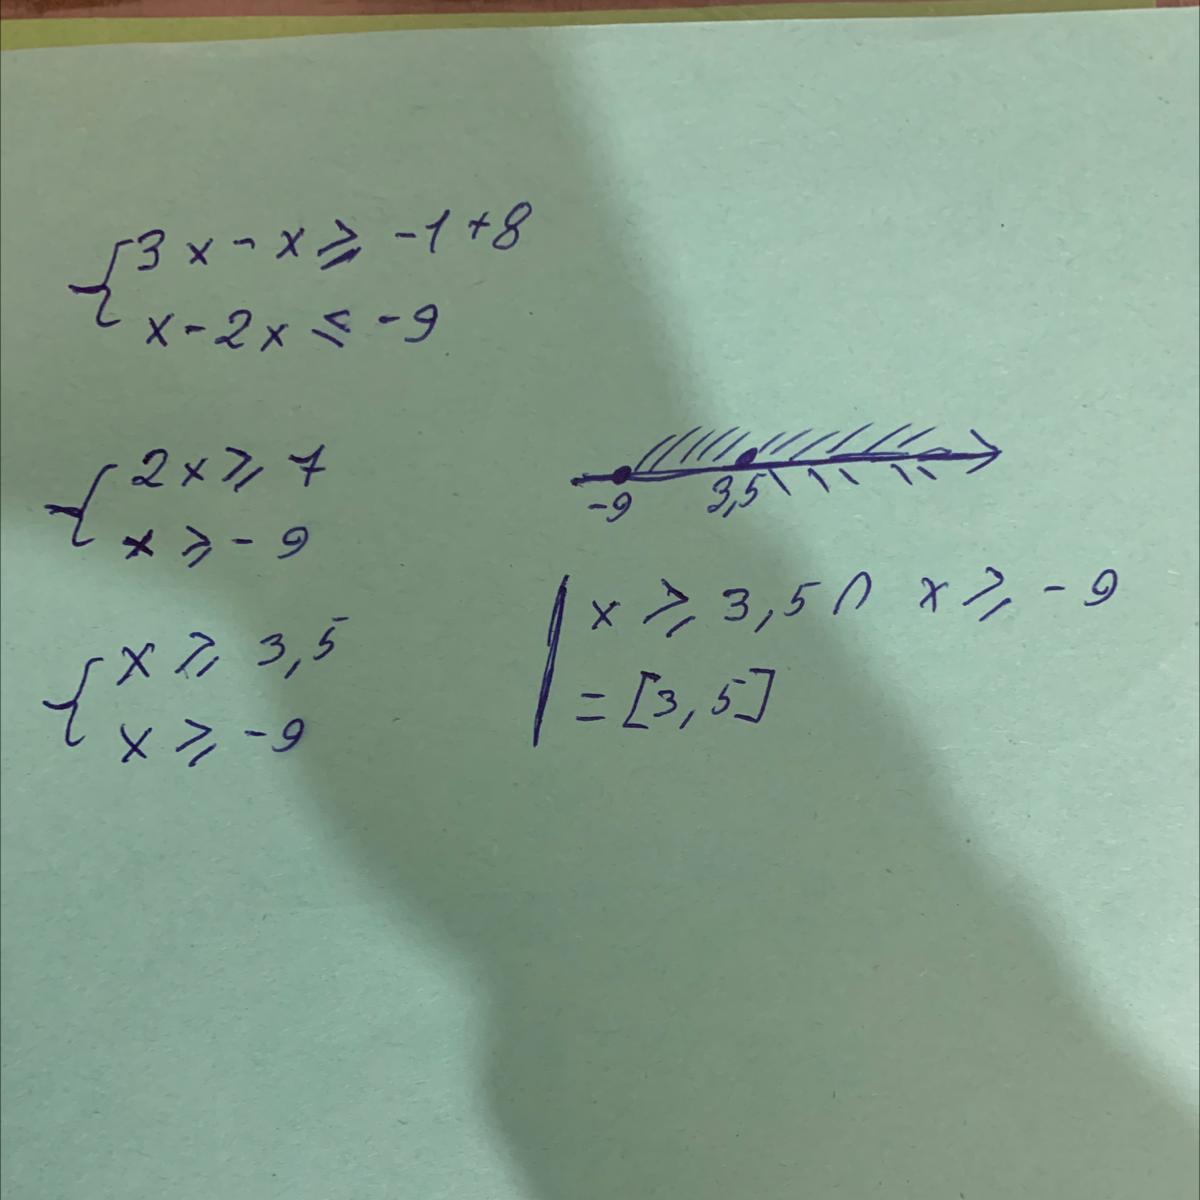 {3x - x ⩾ -1 + 8
x - 2x ≤ -9
{2x ⩾ 7
x ⩾ -9
{x ⩾ 3,5
x ⩾ -9
-9 3,5
x ⩾ 3,5 ∩ x ⩾ -9
= [3,5]